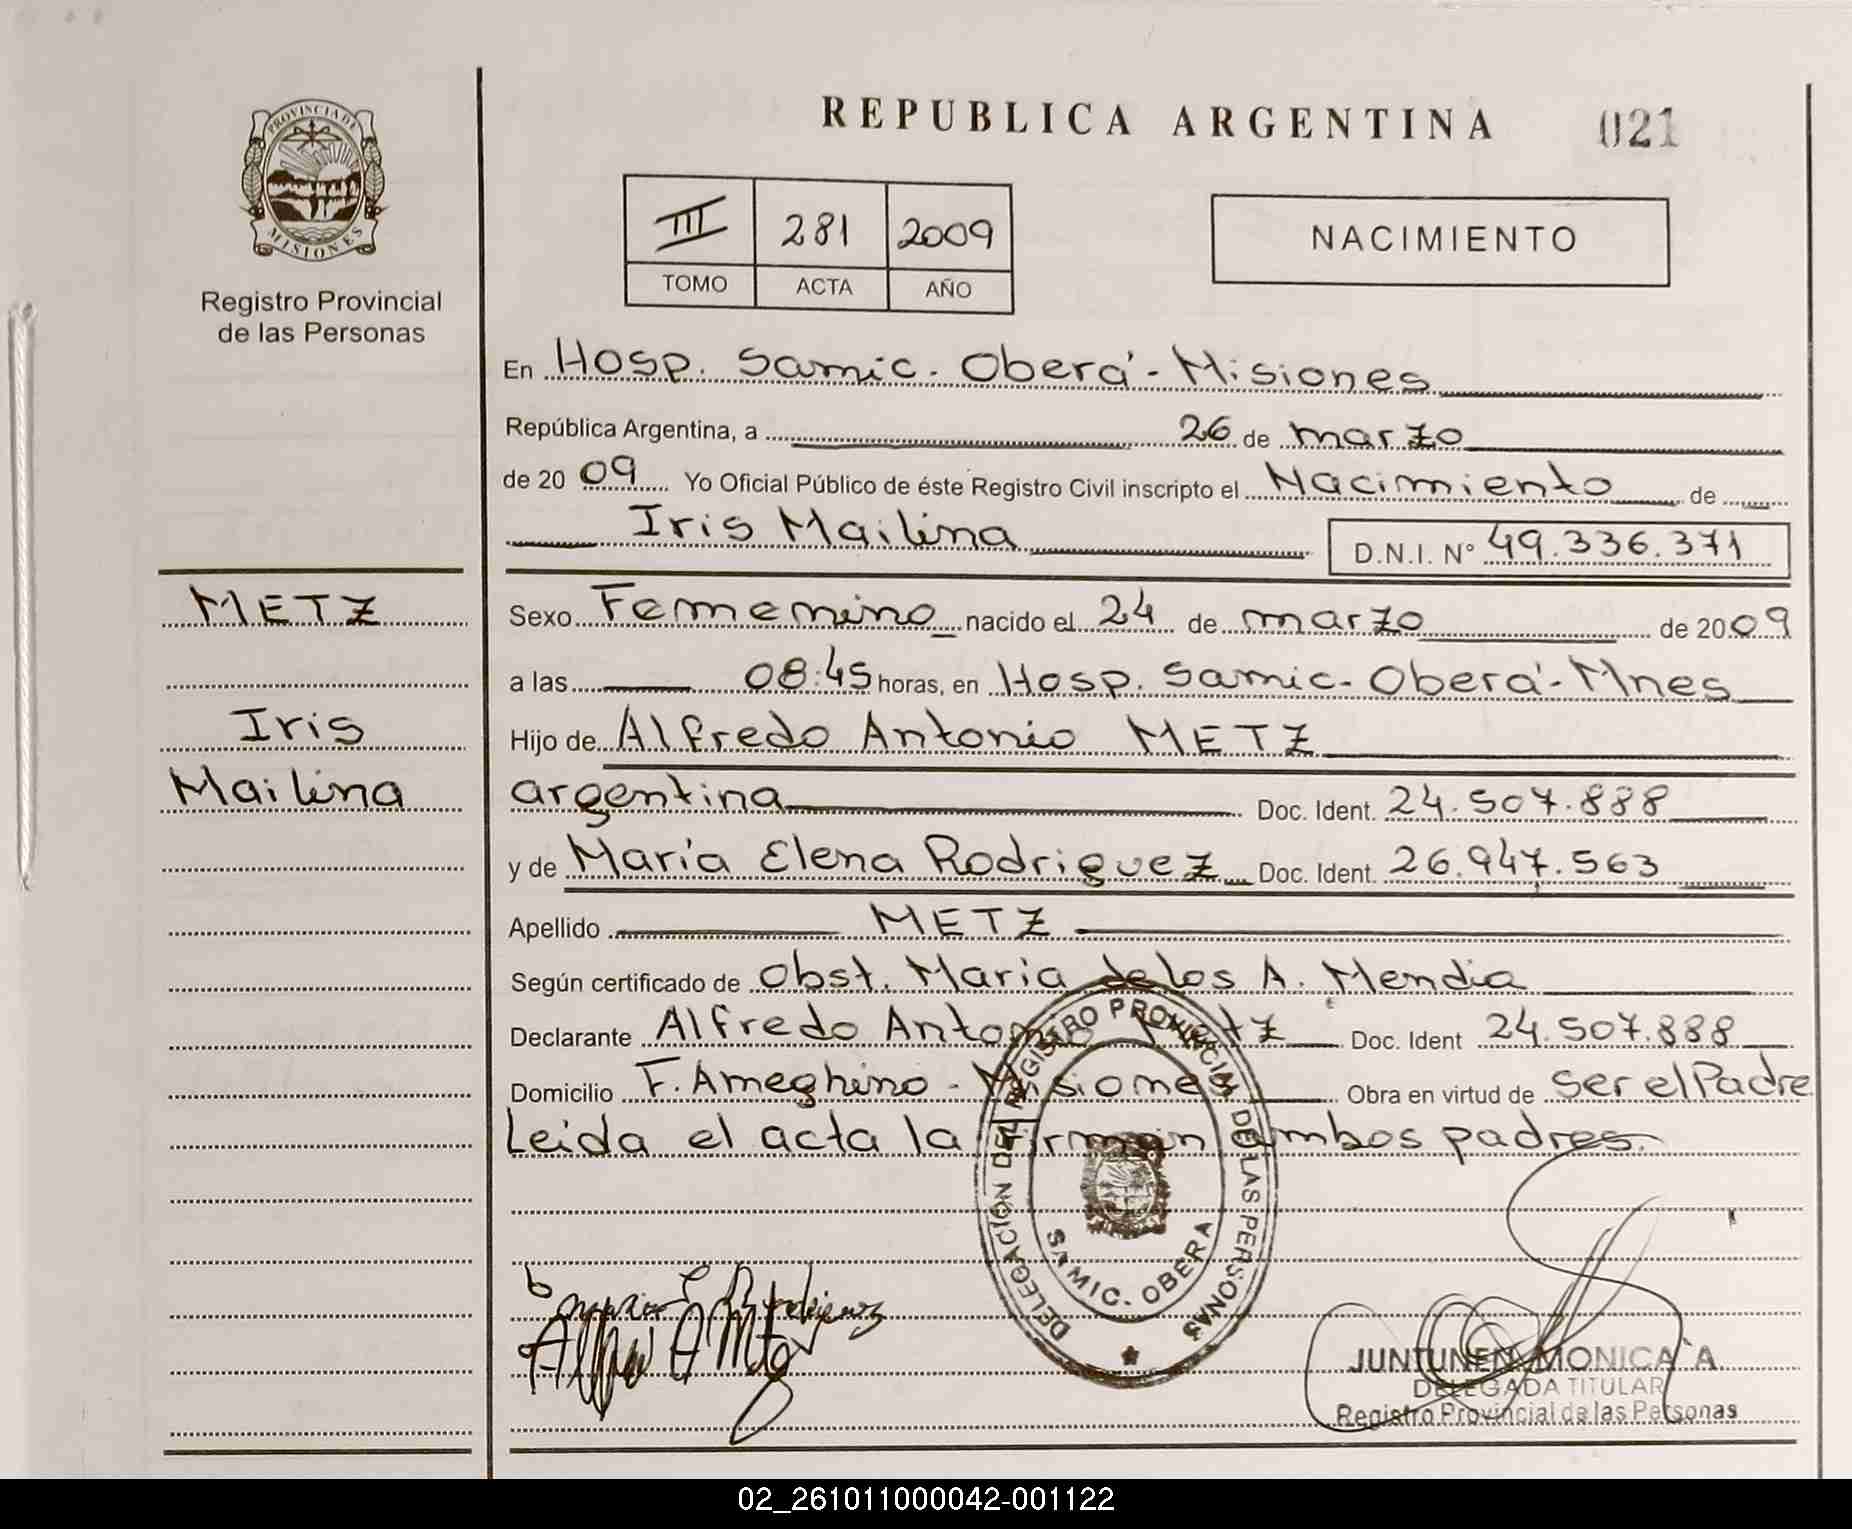 PROVINCIA DE
MISIONES
Registro Provincial
de las Personas
METZ
Iris
Mailina
REPUBLICA ARGENTINA 021
III 281 2009
TOMO ACTA AÑO
NACIMIENTO
En Hosp. Samic. Oberá - Misiones
República Argentina, a 26 de marzo
de 20 09 Yo Oficial Público de éste Registro Civil inscripto el Nacimiento de
Iris Mailina D.N.I. N° 49.336.371
Sexo Femenino nacido el 24 de marzo de 2009
a las 08:45 horas, en Hosp. Samic. Oberá - Mnes
Hijo de Alfredo Antonio METZ
argentina Doc. Ident. 24.507.888
y de María Elena Rodriguez Doc. Ident. 26.947.563
Apellido METZ
Según certificado de Obst. Maria de los A. Mendia
Declarante Alfredo Antonio Metz Doc. Ident 24.507.888
Domicilio F. Ameghino - Misiones Obra en virtud de Ser el Padre
Leida el acta la firman ambos padres.
DELEGACION DEL REGISTRO PROVINCIAL DE LAS PERSONAS
SAMIC. OBERA
JUNTUNEN MONICA A
DELEGADA TITULAR
Registro Provincial de las Personas
02_261011000042-001122